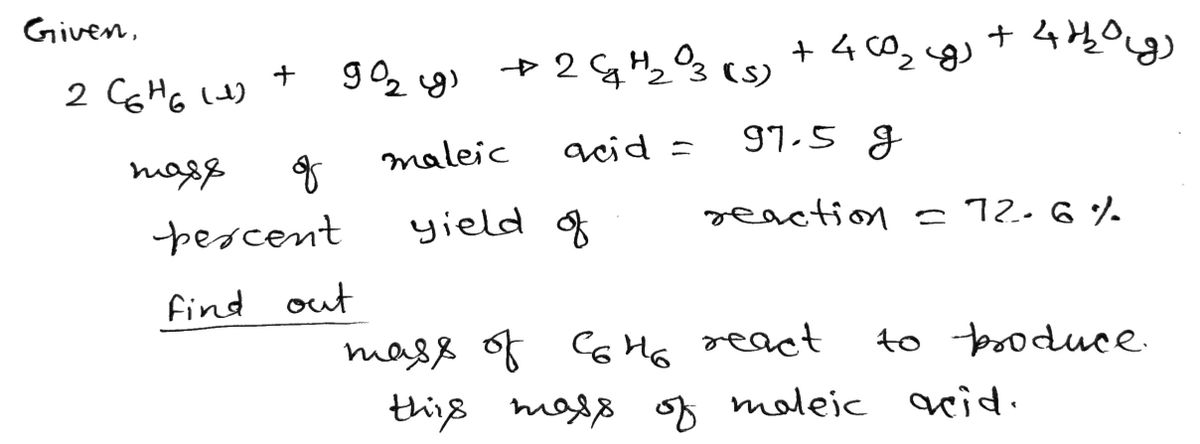 Given,
2 C₆H₆ (l) + 9O₂ (g) → 2 C₄H₂O₃ (s) + 4 CO₂ (g) + 4 H₂O (g)
mass of maleic acid = 97.5 g
percent yield of reaction = 72.6 %
find out
mass of C₆H₆ react to produce.
this mass of maleic acid.